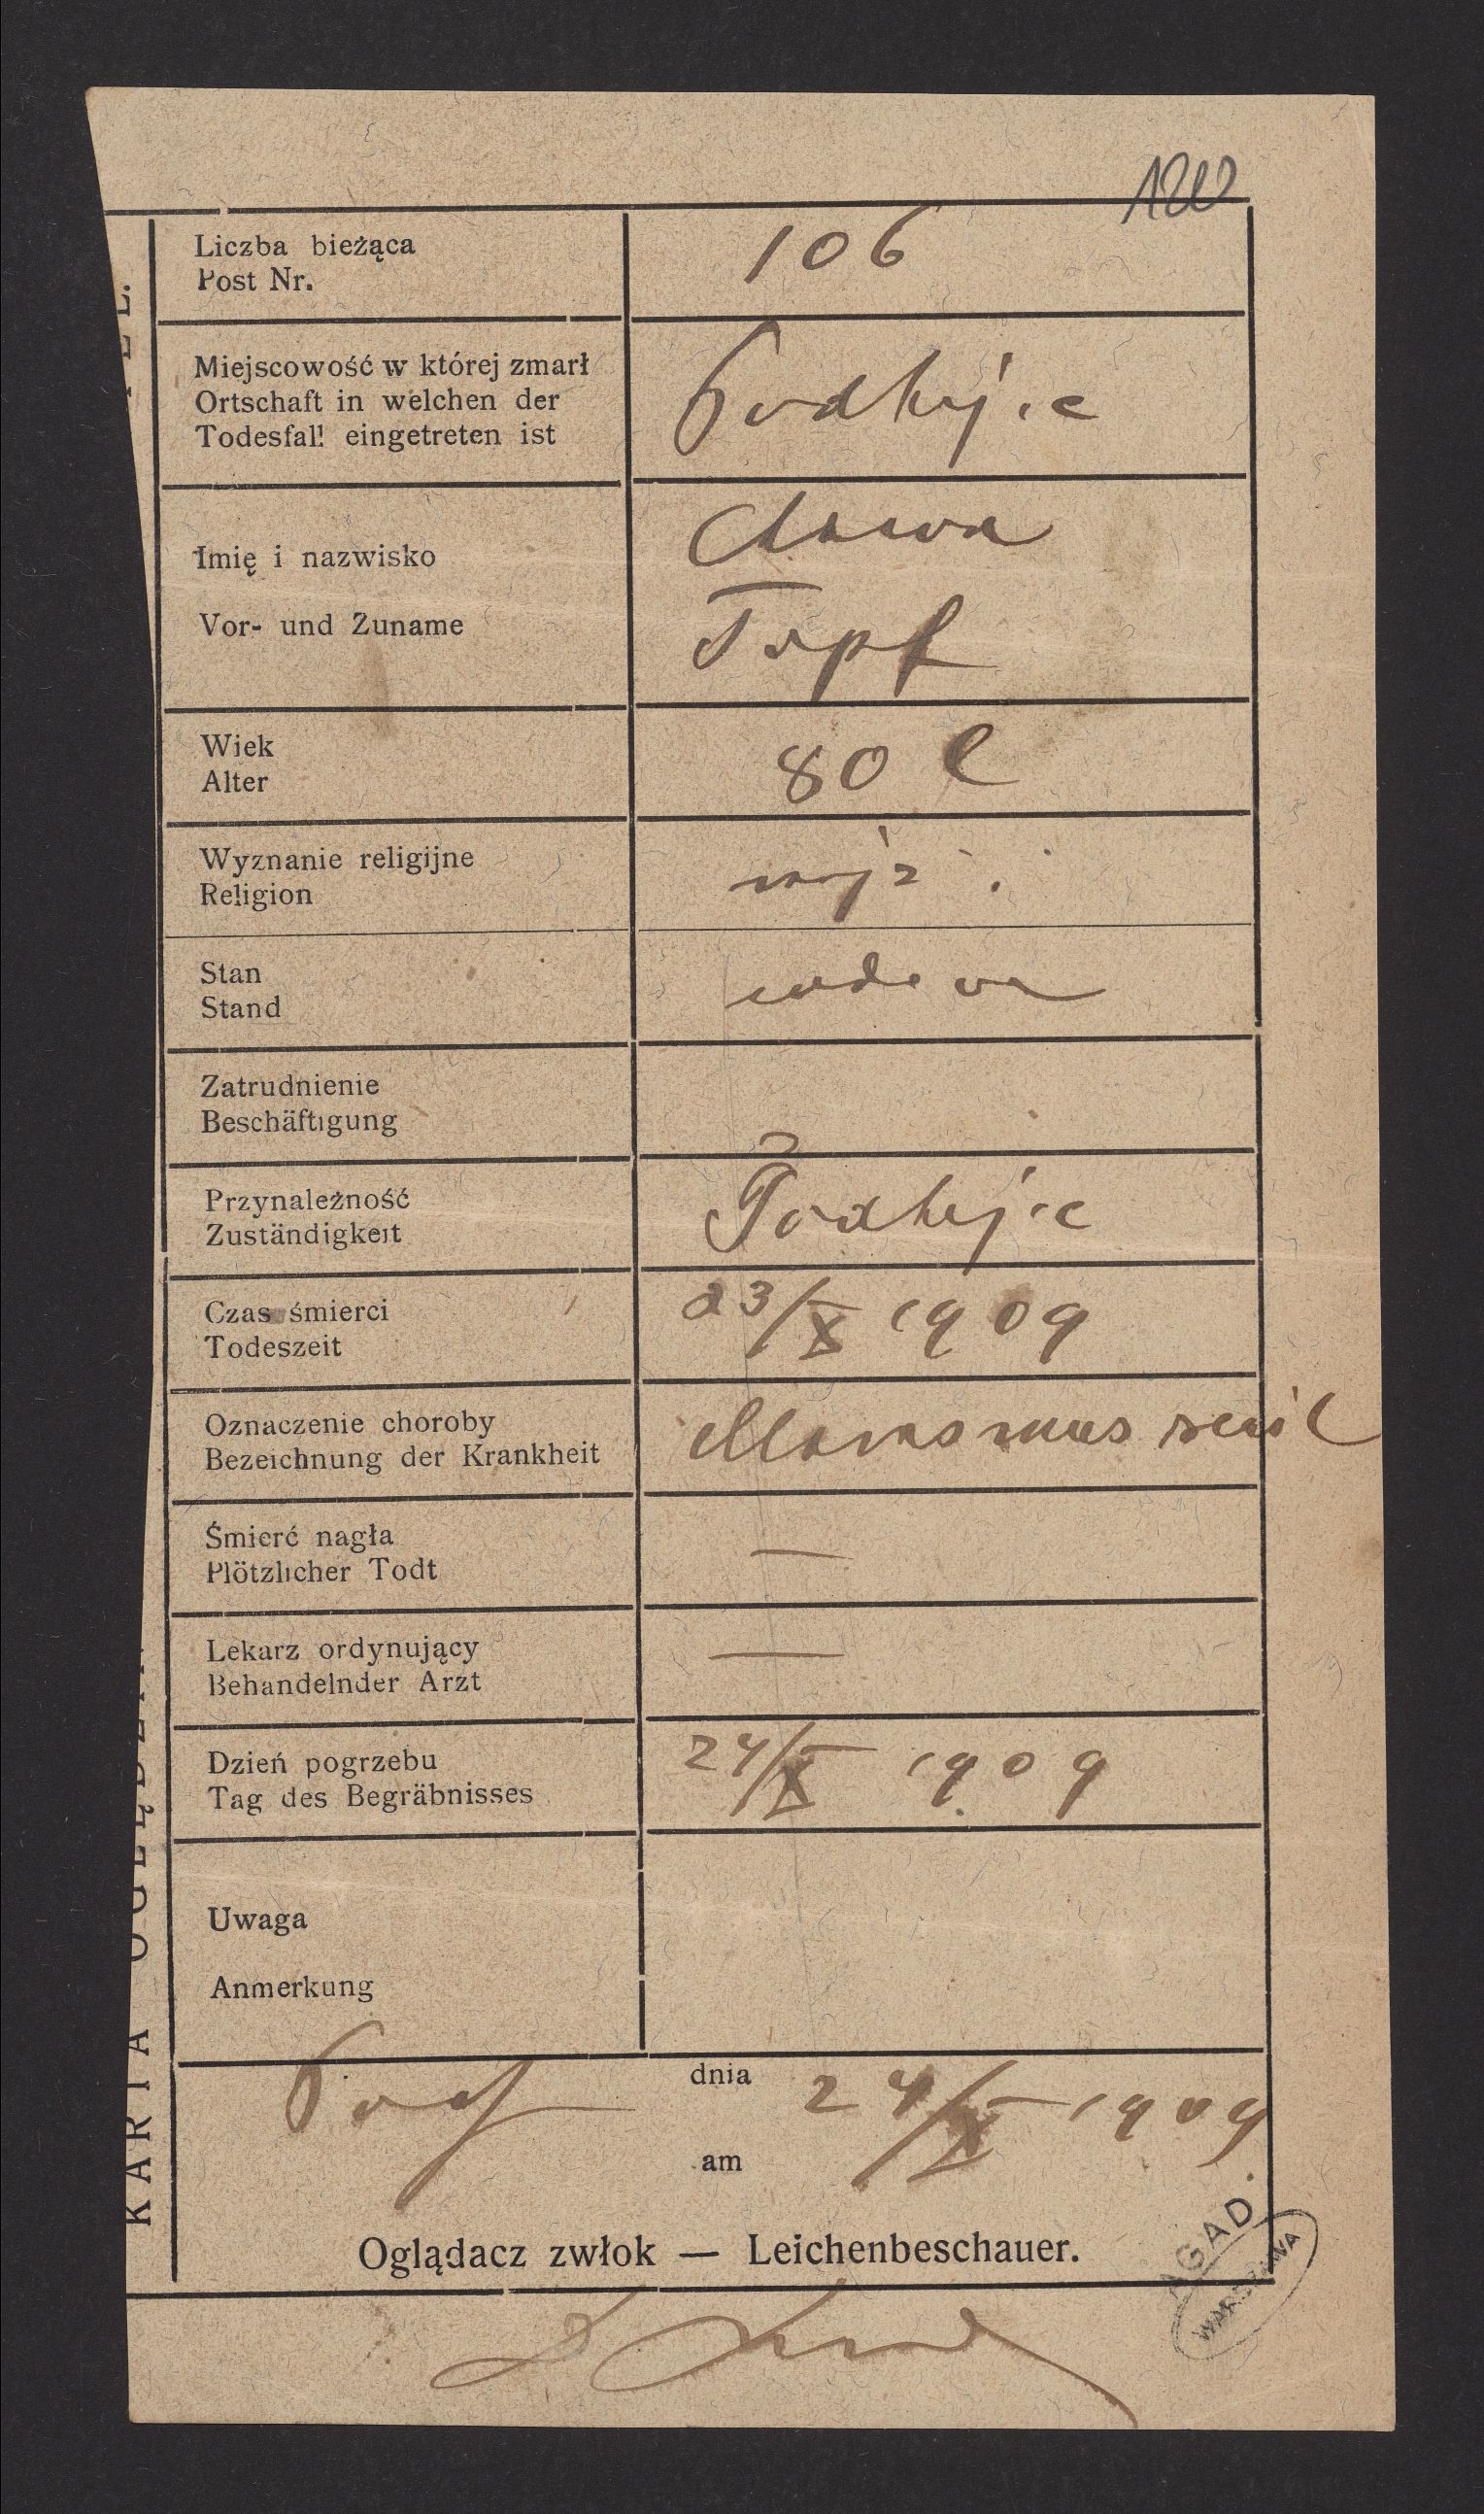 106
Liczba bieżąca
Post Nr.
Miejscowość w której zmarł
Ortschaft in welchen der
Todesfall eingetreten ist
Podhajce
Imię i nazwisko
Vor- und Zuname
Chawa
Topf
Wiek
Alter
80 l
Wyznanie religijne
Religion
mojż.
Stan
Stand
wdowa
Zatrudnienie
Beschäftigung
Przynależność
Zuständigkeit
Podhajce
Czas śmierci
Todeszeit
23/X 1909
Oznaczenie choroby
Bezeichnung der Krankheit
Marasmus senil
Śmierć nagła
Plötzlicher Todt
—
Lekarz ordynujący
Behandelnder Arzt
—
Dzień pogrzebu
Tag des Begräbnisses
24/X 1909
Uwaga
Anmerkung
dnia
am
24/X 1909
Oglądacz zwłok — Leichenbeschauer.
KARTA OGLĘDZIN
AGAD
WARSZAWA